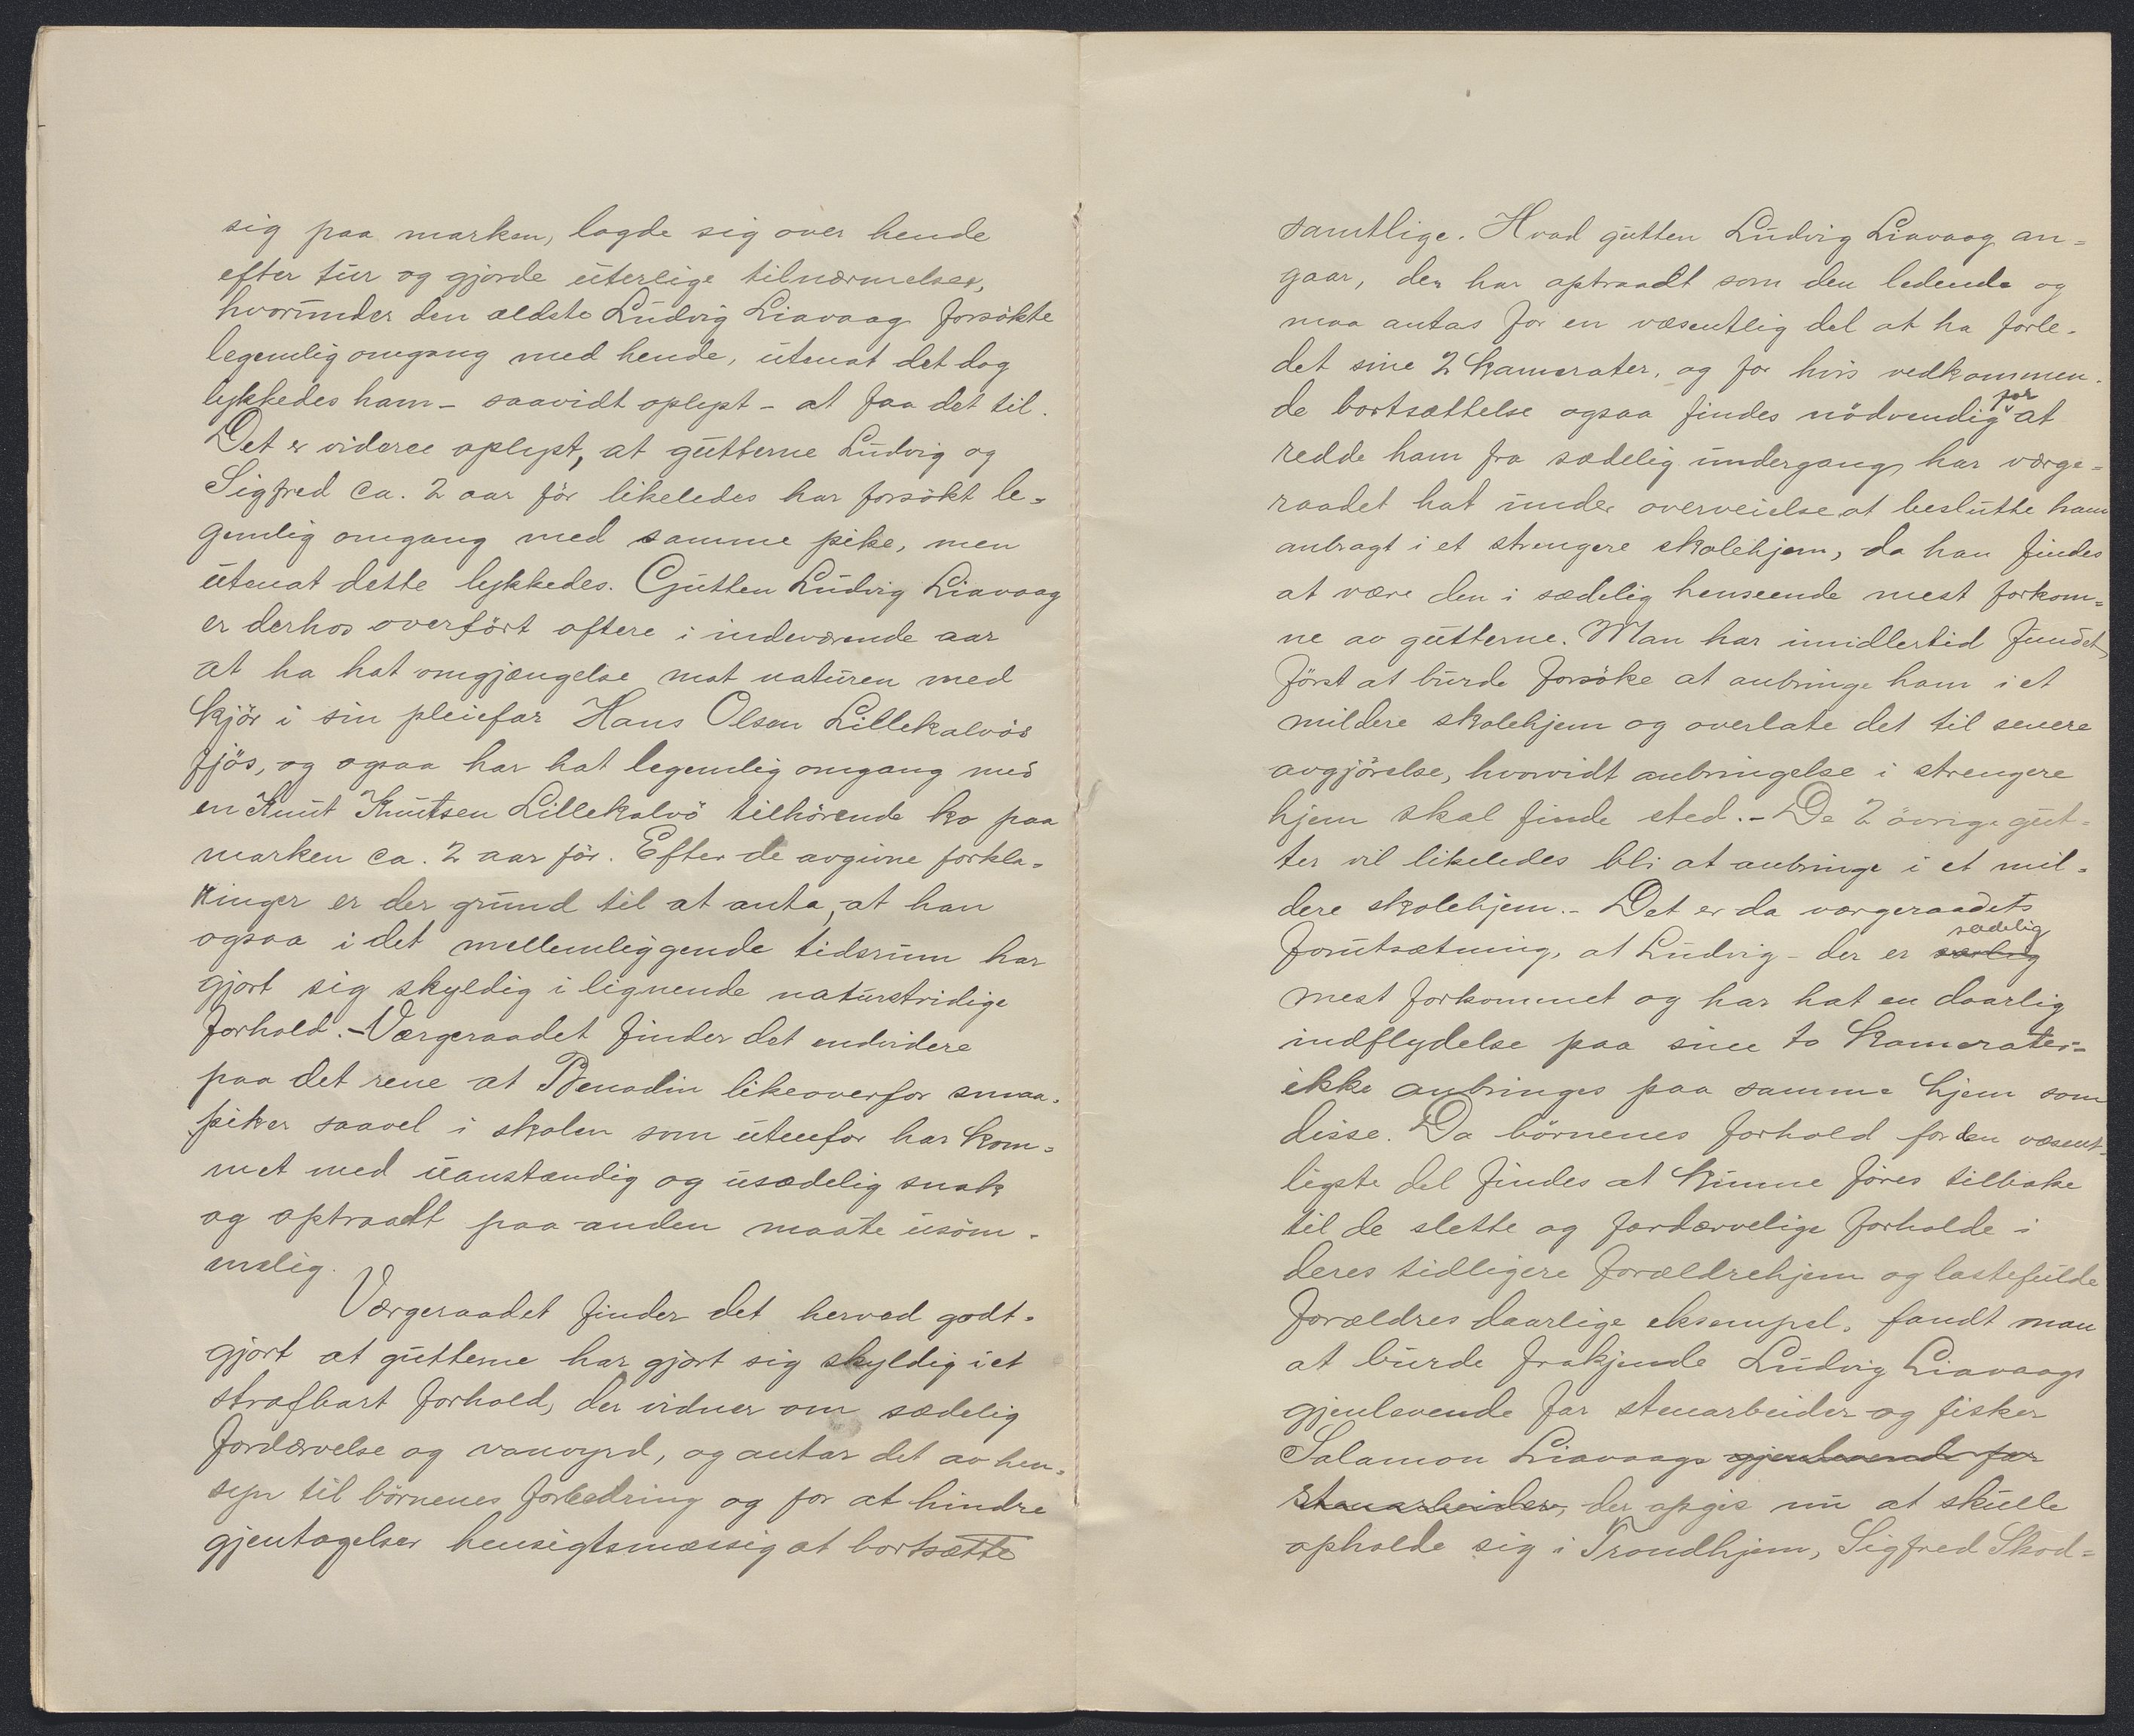 sig paa marken, lagde sig over hende
efter tur og gjorde uterlige tilnærmelser,
hvorunder den ældste Ludvig Liavaag forsökte
legemlig omgang med hende, utenat det dog
lykkedes ham - saavidt oplyst - at faa det til.
Det er videre oplyst, at gutterne Ludvig og
Sigfred ca. 2 aar för likeledes har forsökt le-
gemlig omgang med samme pike, men
utenat dette lykkedes. Gutten Ludvig Liavaag
er derhos overfört oftere i indeværende aar
at ha hat omgjængelse mot naturen med
kjör i sin pleiefar Hans Olsen Lillekalvös
fjös, og ogsaa har hat legemlig omgang med
en Knut Knutsen Lillekalvö tilhörende ko paa
marken ca. 2 aar för. Efter de avgivne forkla-
ringer er der grund til at anta, at han
ogsaa i det mellemliggende tidsrum har
gjort sig skyldig i lignende naturstridige
forhold. - Værgeraadet finder det endvidere
paa det rene at Benadin likeoverfor smaa-
piker saavel i skolen som utenfor har kom-
met med uanstændig og usædelig snak
og optraadt paa anden maate usöm-
melig.
Værgeraadet finder det herved godt-
gjort at gutterne har gjort sig skyldig i et
strafbart forhold, der vidner om sædelig
fordærvelse og vanvyrd, og antar det av hen-
syn til börnenes forbedring og for at hindre
gjentagelser hensigtsmæssig at bortsætte
samtlige. Hvad gutten Ludvig Liavaag an-
gaar, der har optraadt som den ledende og
maa antas for en væsentlig del at ha forle-
det sine 2 kamerater, og for hvis vedkommen-
de bortsættelse ogsaa findes nödvendig for at
redde ham fra sædelig undergang, har værge-
raadet hat under overveielse at beslutte ham
anbragt i et strengere skolehjem, da han findes
at være den i sædelig henseende mest forkom-
ne av gutterne. Man har imidlertid fundet,
först at burde forsöke at anbringe ham i et
mildere skolehjem og overlate det til senere
avgjörelse, hvorvidt anbringelse i strengere
hjem skal finde sted. - De 2 övrige gut-
ter vil likeledes bli at anbringe i et mil-
dere skolehjem. - Det er da værgeraadets
forutsætning, at Ludvig - der er særlig sædelig
mest forkommet og har hat en daarlig
indflydelse paa sine to kamerater -
ikke anbringes paa samme hjem som
disse. Da börnenes forhold for den væsent-
ligste del findes at kunne föres tilbake
til de slette og fordærvelige forholde i
deres tidligere forældrehjem og lastefulde
forældres daarlige eksempel, fandt man
at burde frakjende Ludvig Liavaags
gjenlevende far stenarbeider og fisker
Salamon Liavaags gjenlevende far
stenarbeider, der opgis nu at skulle
opholde sig i Trondhjem, Sigfred Skod-